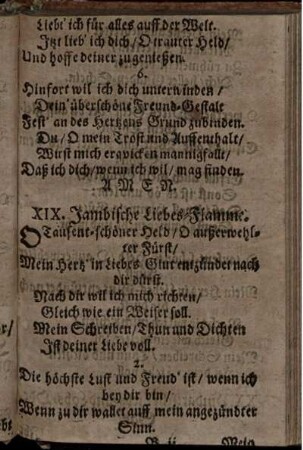 Liebt' ich für alles auff der Welt.
Itzt lieb' ich dich / O trauter Held /
Und hoffe deiner zugenießen.
6.
Hinfort wil ich dich unterwinden /
Dein' überschöne Freund-Gestalt
Fest' an des Hertzens Grund zubinden.
Du / O mein Trost und Auffenthalt /
Wirst mich erqvicken mannigfalt /
Daß ich dich / wenn ich wil / mag finden.
A M E N.
XIX. Jambische Liebes-Flamme.
O Tausent-schöner Held / O außerwehl-
ter Fürst /
Mein Hertz' in Liebes Glut entzündet nach
dir dürst.
Nach dir wil ich mich richten /
Gleich wie ein Weiser soll.
Mein Schreiben / Thun und Dichten
Ist deiner Liebe voll.
2.
Die höchste Lust und Freud' ist / wenn ich
bey dir bin /
Wenn zu dir wallet auff mein angezündter
Sinn.
B ij